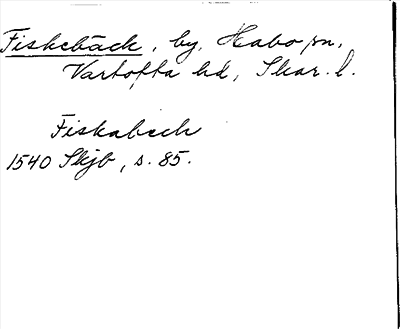 Fiskebäck, by, Habo sn,
Vartofta hd, Skar. l.
Fiskabech
1540 Skjb, s. 85.